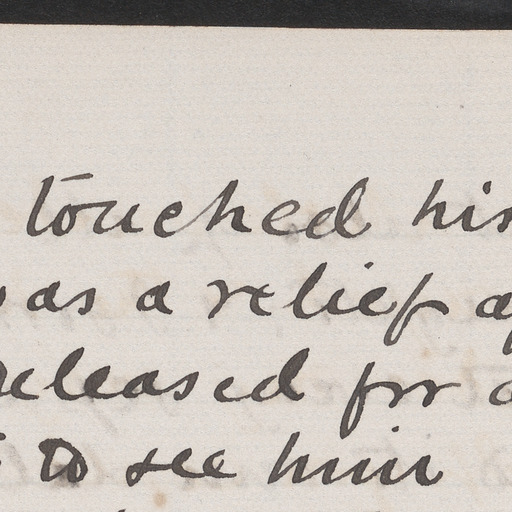 touched his
was a relief
released for a
to see him